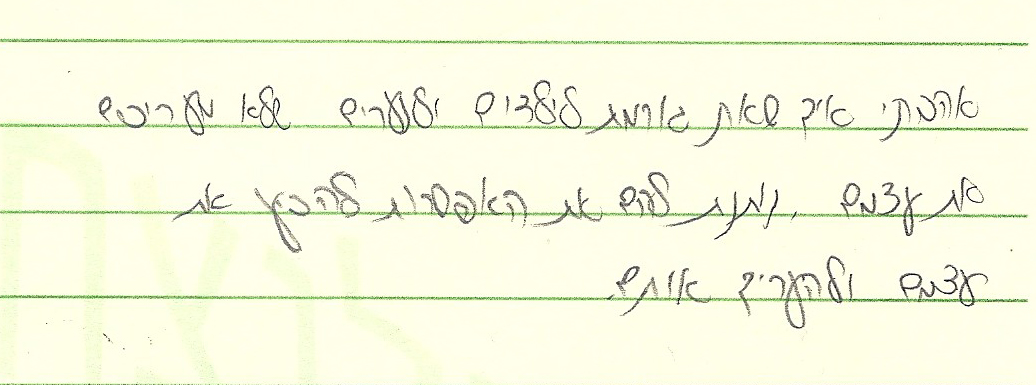 אהבתי איך שאת גורמת לילדים ולנערים שלא מעריכים
את עצמם, נותנת להם את האפשרות להביע את
עצמם ולהעריך אותם.